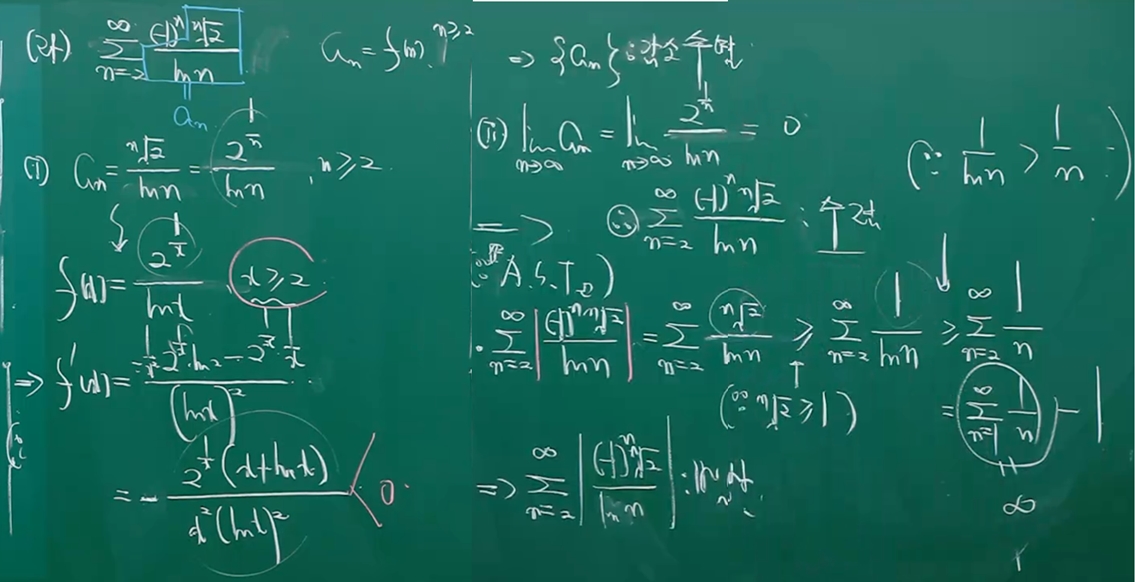 (2f) ∞∑n=2 (-1)ⁿ ⁿ√2 / ln n
aₙ
aₙ = f(n), n≥2
(i) aₙ = ⁿ√2 / ln n = 2^(1/n) / ln n, n≥2
f(x) = 2^(1/x) / ln x, x≥2
⇒ f'(x) =
(ln x)²
= - 2^(1/x) (x + ln x) / x² (ln x)² < 0.
⇒ {aₙ} : 감소수열
(ii) lim n→∞ aₙ = lim n→∞ 2^(1/n) / ln n = 0
⇒ ∴ ∞∑n=2 (-1)ⁿ ⁿ√2 / ln n : 수렴
(∵ A.S.T.)
∞∑n=2 |(-1)ⁿ ⁿ√2 / ln n| = ∞∑n=2 ⁿ√2 / ln n ≥ ∞∑n=2 1/ln n ≥ ∞∑n=2 1/n
(∵ ⁿ√2 ≥ 1)
(∵ 1/ln n > 1/n)
= ∞∑n=1 1/n - 1
∞
⇒ ∞∑n=2 |(-1)ⁿ ⁿ√2 / ln n| : 발산